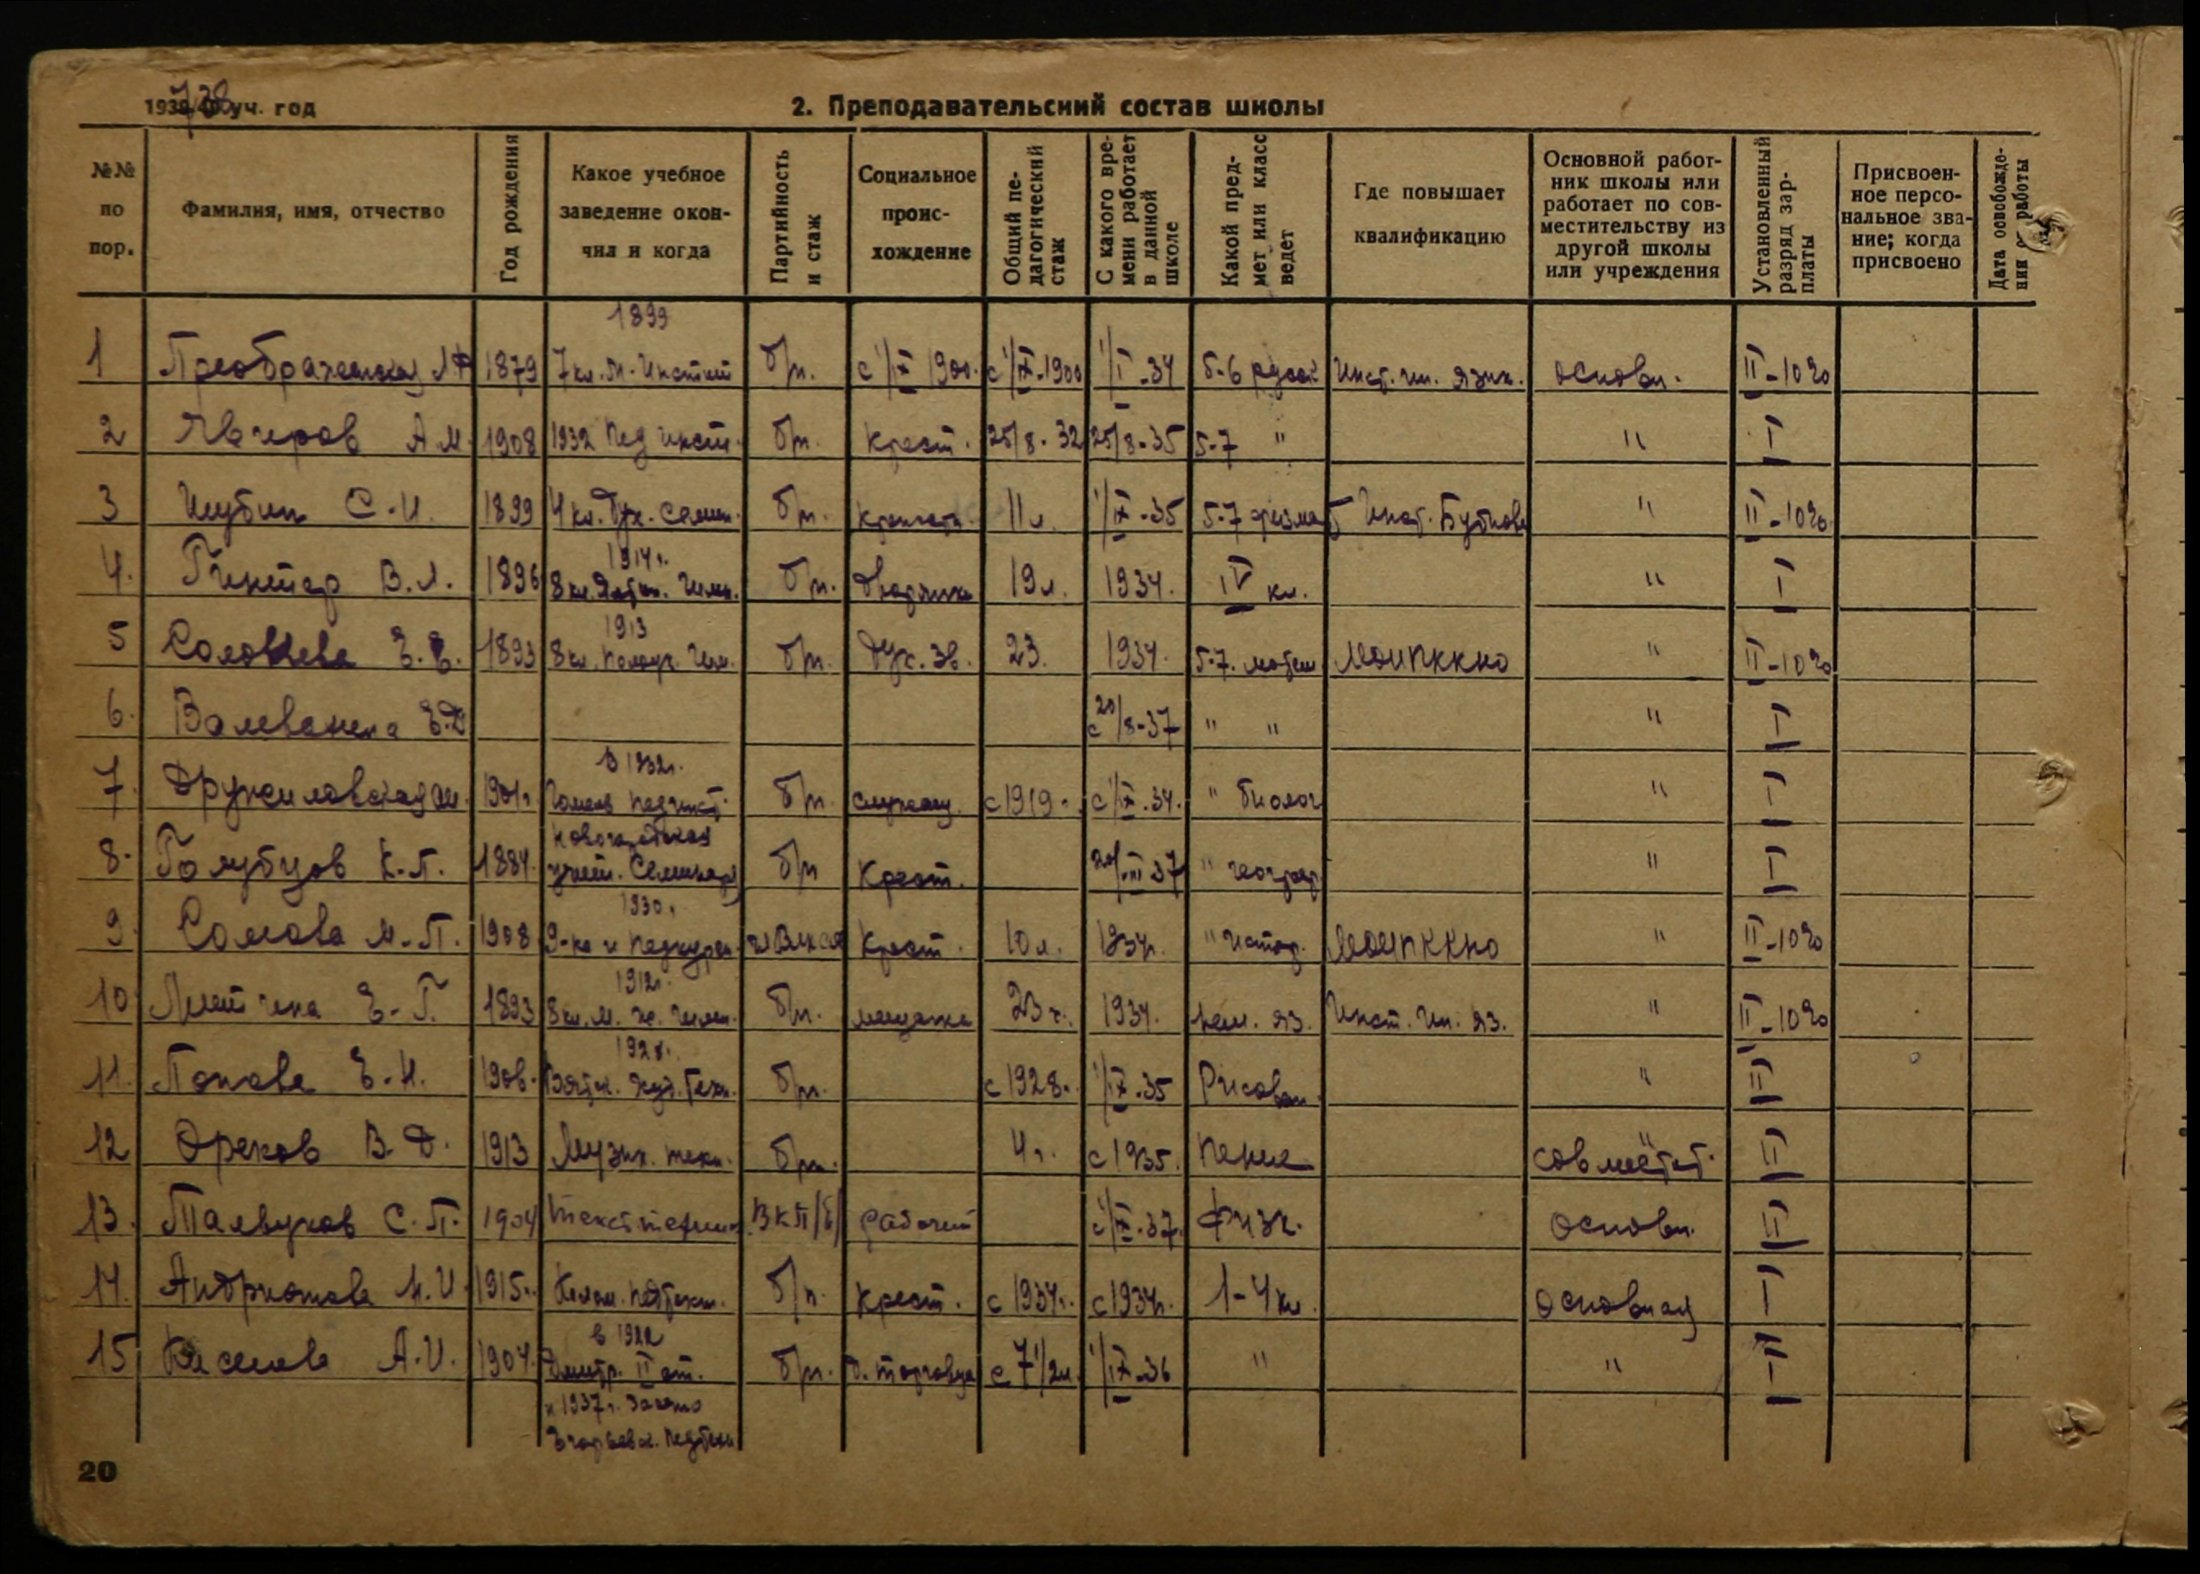 1939/40 уч. год
738
2. Преподавательский состав школы
№№ по пор.
Фамилия, имя, отчество
Год рождения
Какое учебное заведение окончил и когда
Партийность и стаж
Социальное происхождение
Общий педагогический стаж
С какого времени работает в данной школе
Какой предмет или класс ведет
Где повышает квалификацию
Основной работник школы или работает по совместительству из другой школы или учреждения
Установленный разряд зарплаты
Присвоенное персональное звание; когда присвоено
Дата освобождения с работы
1899
1 Преображенская 1879 7 кл. б/п. с 1/IX 1900 с 1/IX-1900 1/I-34 5-6 русск Инст. ин. язык. основн. II-10%
2 А М. 1908 1932 Пед инст. б/п. крест. 25/8-32 25/8-35 5-7 " " I
3 Шубин С.И. 1899 4 кл. Дух. семин. б/п. 11 л. 1/IX-35 5-7 физма Инст. Бубнова " II-10%
1914 г.
4. Гинтер В.Л. 1896 8 кл. Гимн. б/п. дворянка 19 л. 1934. IV кл. " I
1913
5 Соловьева Е.Е. 1893 8 кл. Гим. б/п. дух. зв. 23. 1934. 5-7. матем МОИПККНО " II-10%
6. с 20/8-37 " " " I
В 1932 г.
7. Дружиловская 1901 г. Гомель пединст. б/п. служащ. с 1919 г. с 1/IX-34. " биолог " I
8. Голубцов К.П. 1884. учит. Семинар б/п крест. 37 " географ " I
1930 г.
9 Сомова М.П. 1908 9-ка и педкурсы крест. 10 л. 1934 г. " истор. МОИПККНО " II-10%
1912 г.
10 Е.Г. 1893 8 кл. М. ж. гимн. б/п. мещанка 23 г. 1934. нем. яз. Инст. ин. яз. " II-10%
1928 г.
11. Попова Е.Н. 1906. Вятск. худ. техн. б/п. с 1928 г. 1/IX-35 Рисован. " II
12 Орехов В.Д. 1913 Музык. техн. б/п. 4 г. с 1935. пение совместит. II
13. С.П. 1904 ВКП/б/ рабочий с 1/IX-37. Физк. основн. II
14. Андрионова М.И. 1915 г. педтехн. б/п. крест. с 1934 г. с 1934 г. 1-4 кл. основная I
в 1922
15 Киселева А.И. 1904. Дмитр. II ст. б/п. торговца с 7 1/2 л. 1/IX-36 " " II
и 1937 г. заочно
Егорьевск. педтехн
20